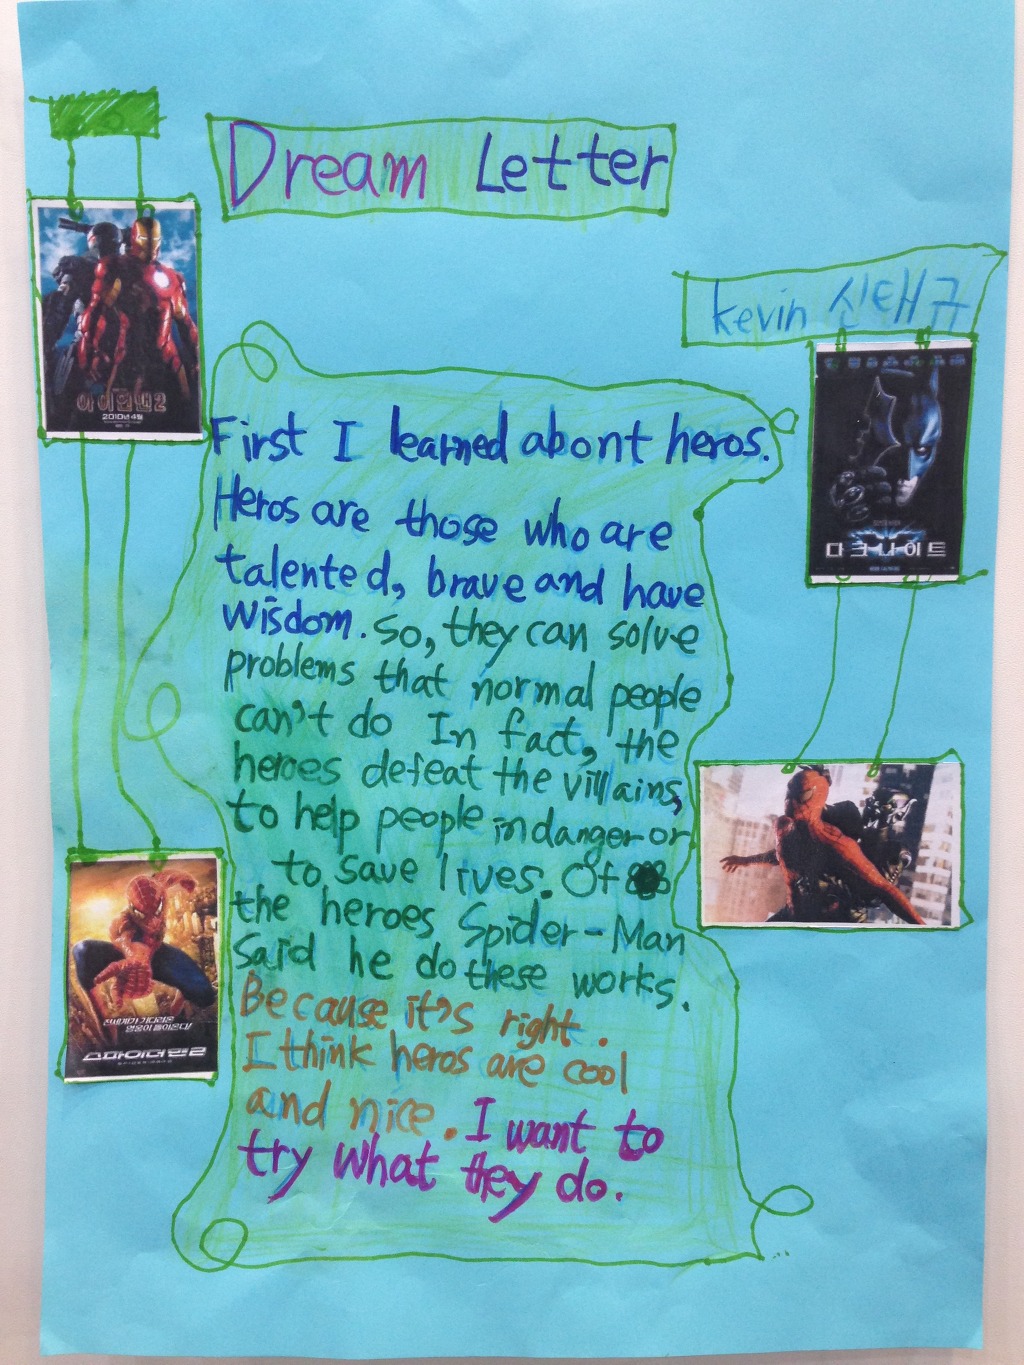 Dream Letter
kevin 신태규
아이언맨2
2010년 4월
다크나이트
First I learned about heros.
Heros are those who are
talented, brave and have
wisdom. So, they can solve
problems that normal people
can't do In fact, the
heroes defeat the villains,
to help people in danger or
to save lives. Of
the heroes Spider-Man
Said he do these works.
Because it's right.
I think heros are cool
and nice. I want to
try what they do.
전세계가 기다려온
영웅이 돌아온다!
스파이더맨2